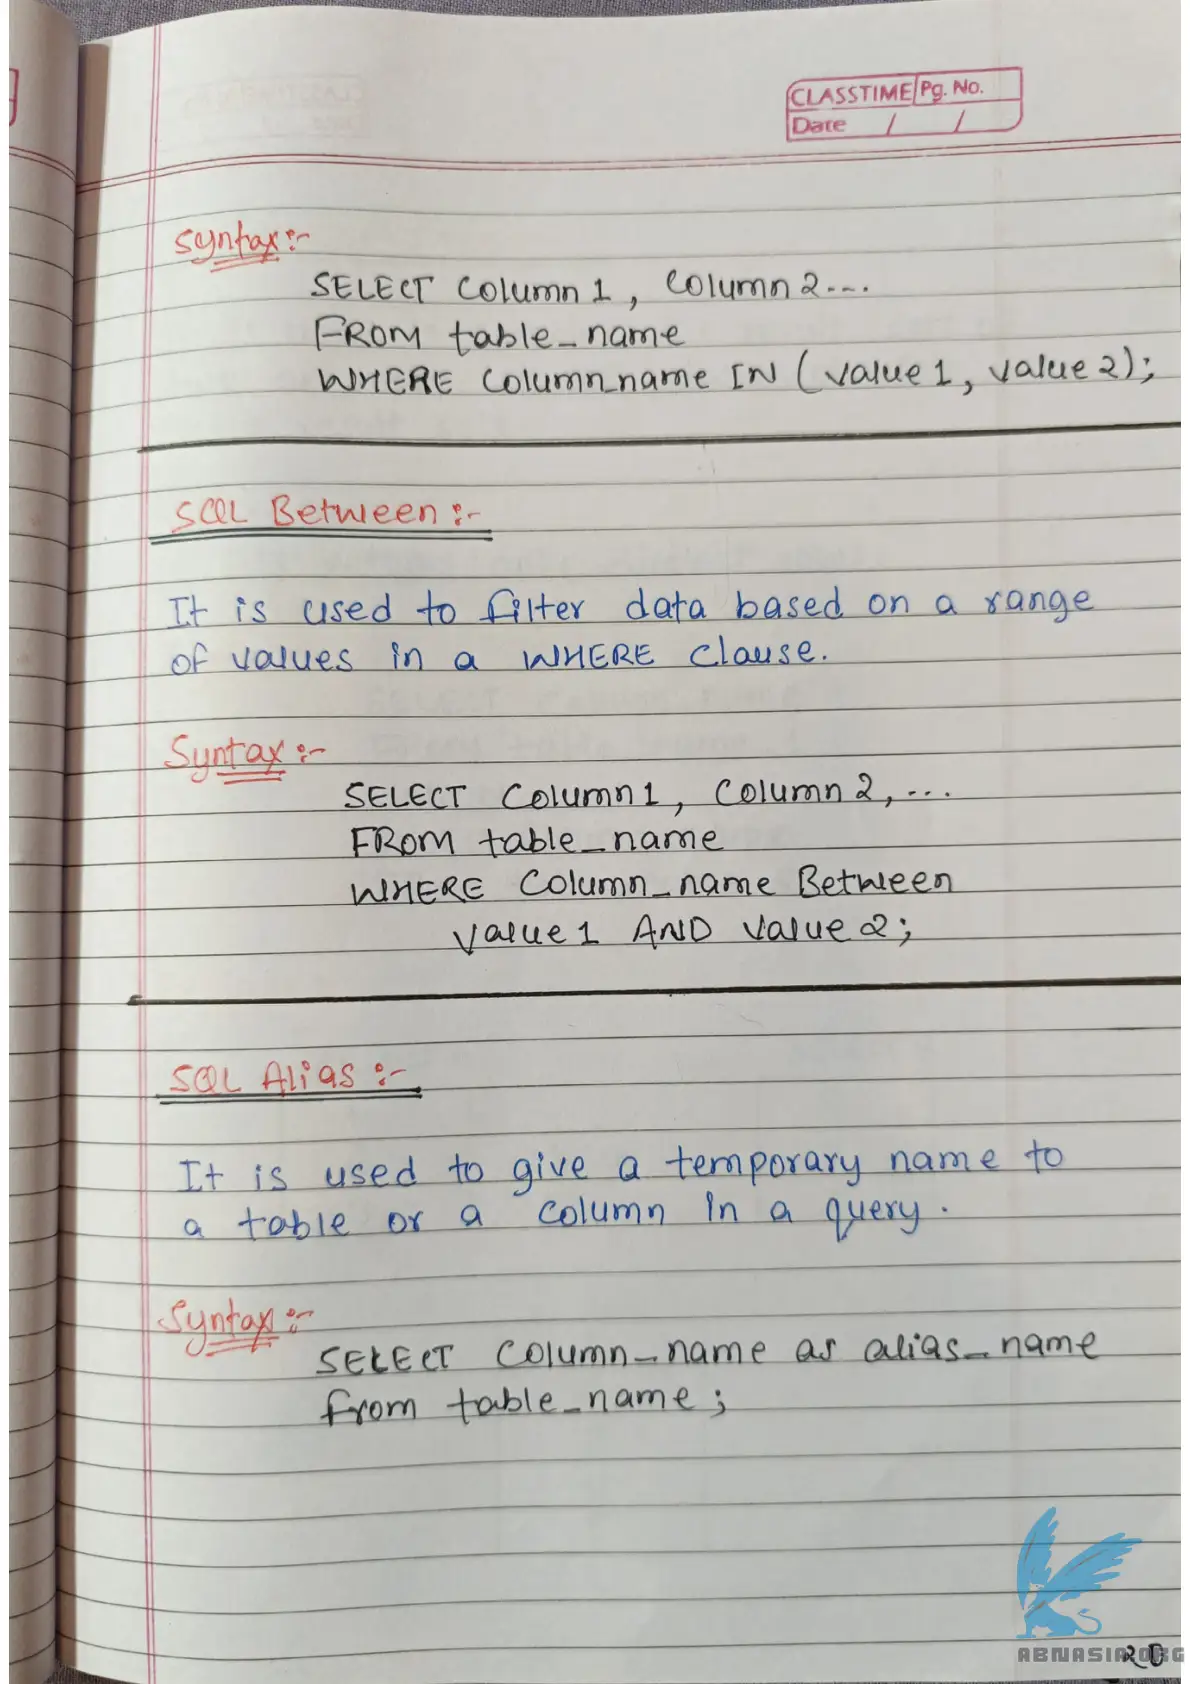 CLASSTIME Pg. No.
Date / /
Syntax :-
SELECT Column 1 , Column 2 ...
FROM table_name
WHERE Column_name IN ( value 1 , value 2 ) ;
SQL Between :-
It is used to filter data based on a range
of values in a WHERE clause.
Syntax :-
SELECT Column 1 , Column 2 , ...
FROM table_name
WHERE Column_name Between
value 1 AND value 2 ;
SQL Alias :-
It is used to give a temporary name to
a table or a column in a query .
Syntax :-
SELECT Column_name as alias_name
from table_name ;
ABNASIA.ORG
20